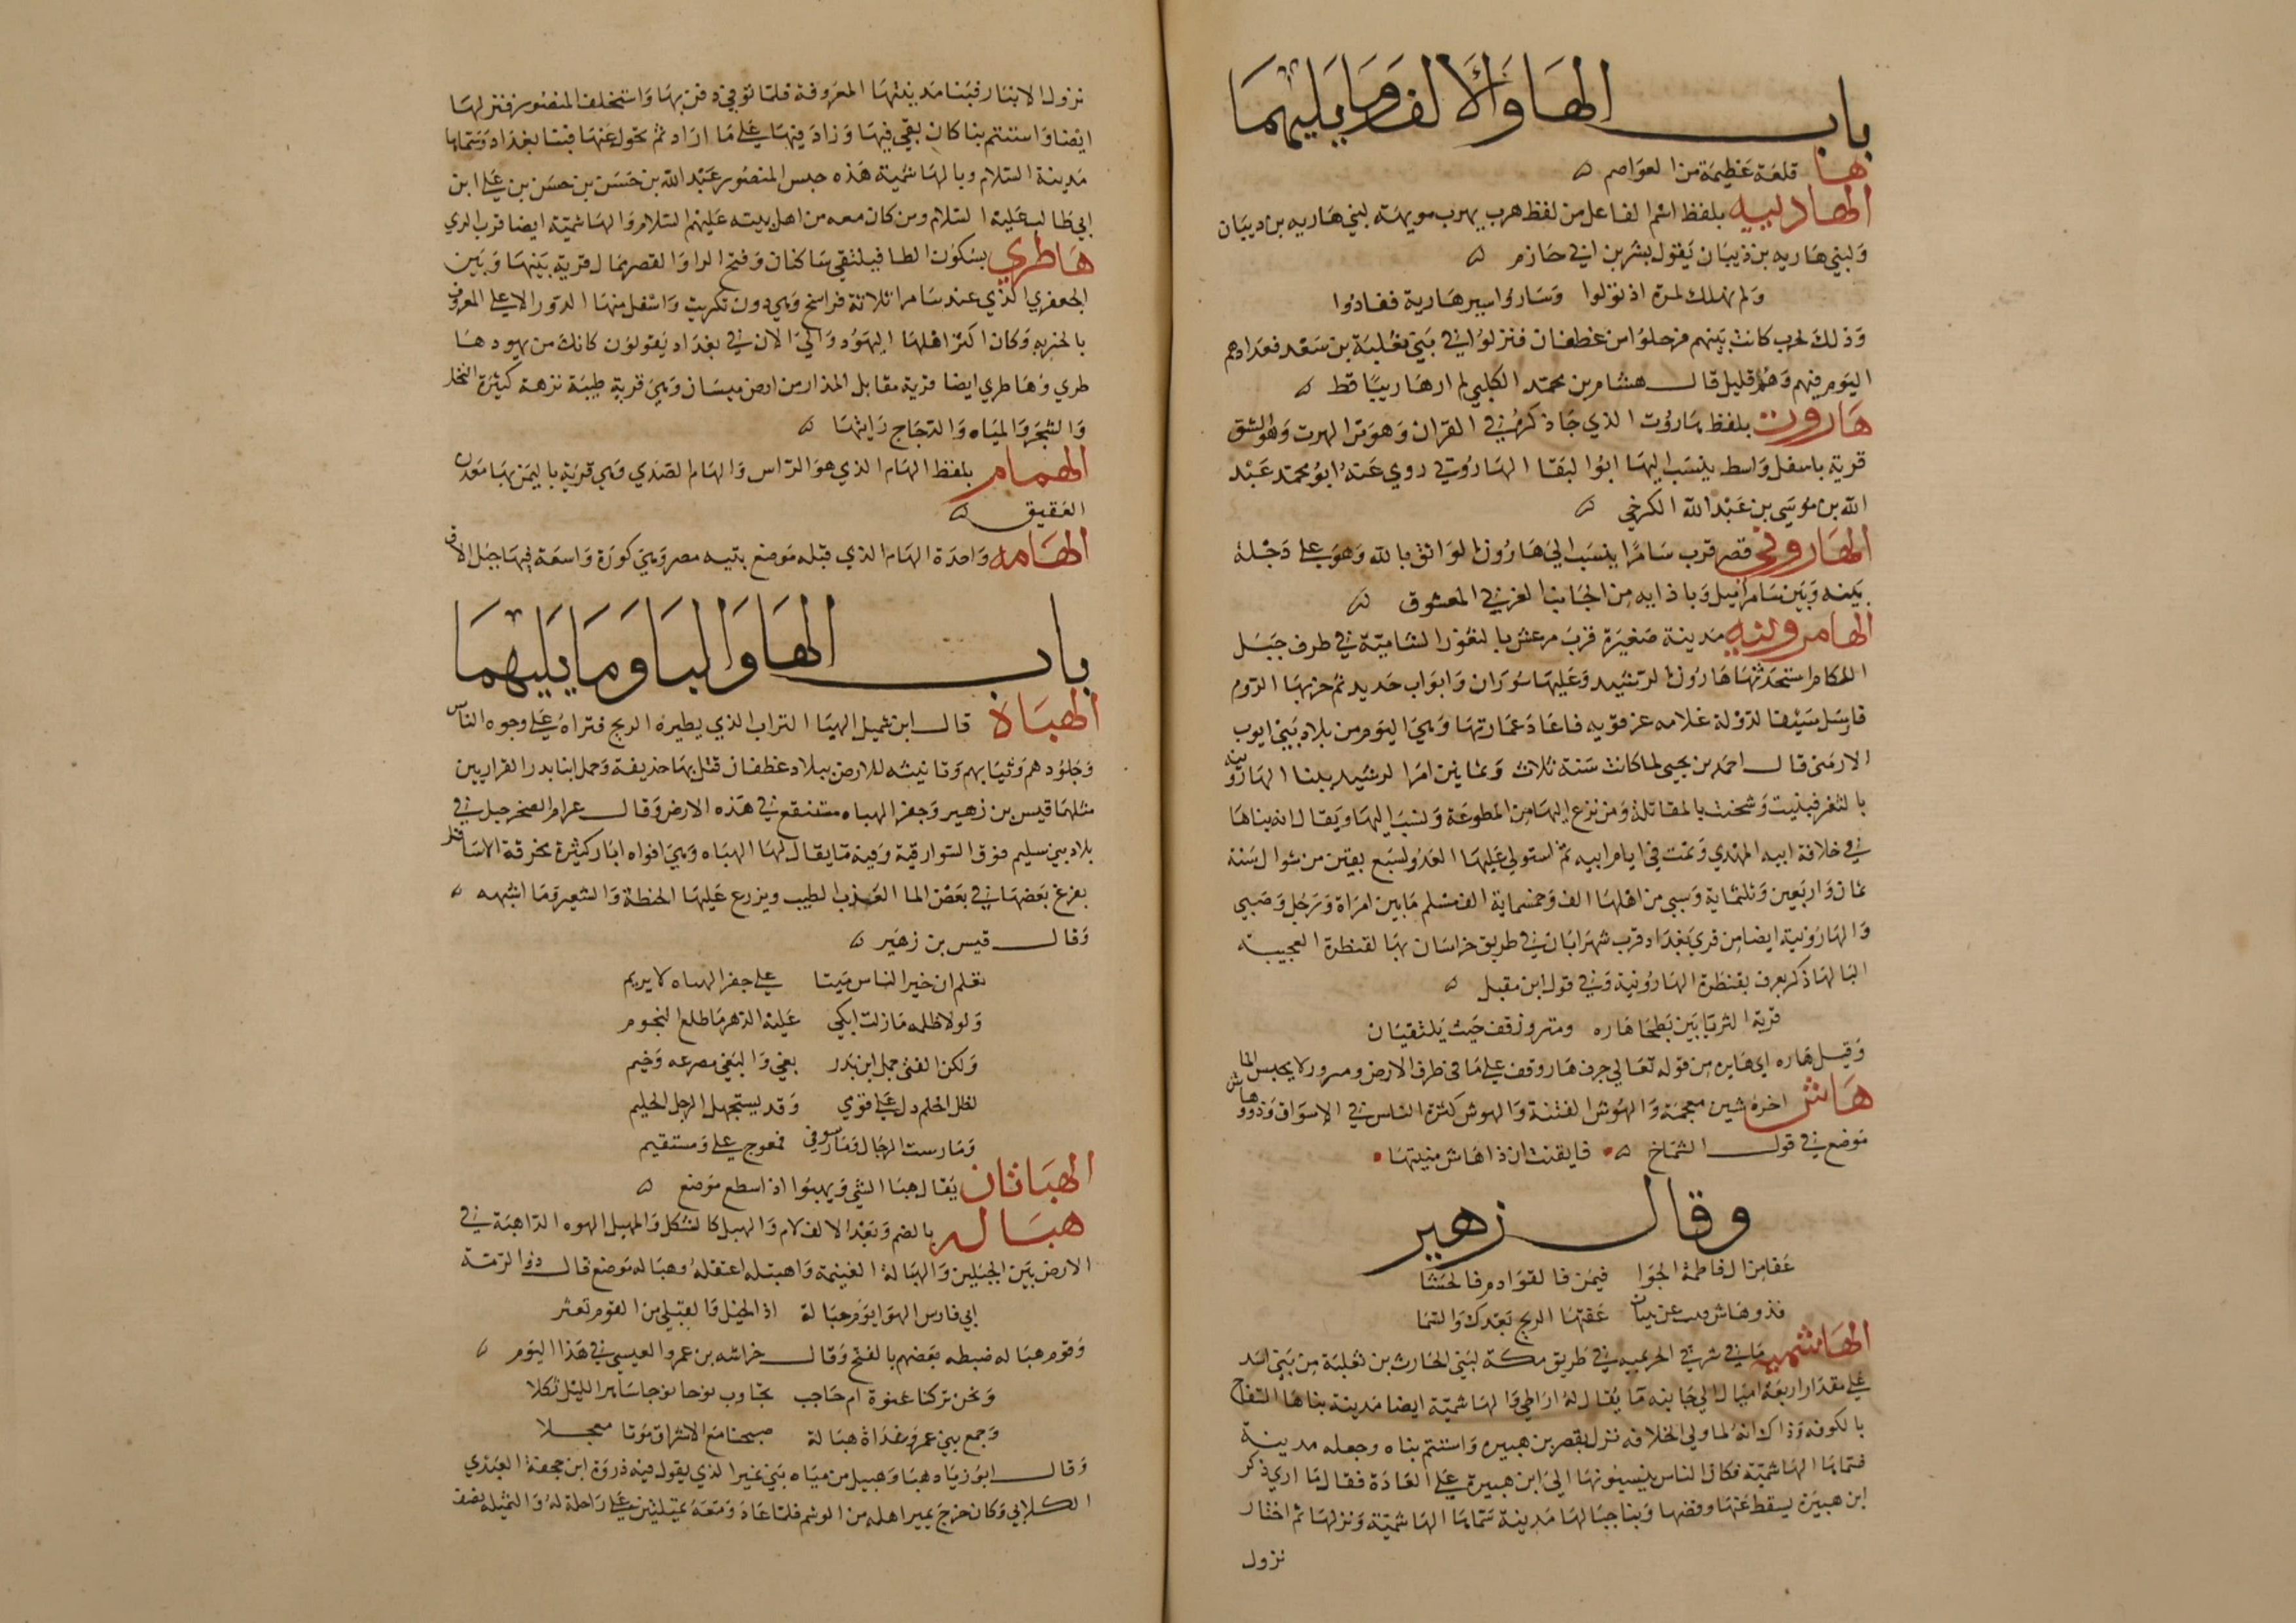 باب الهاوالالف وما يليهما
ها قلعة عظيمة من العواصم
الهاربيه بلفظ اسم الفاعل من لفظ هرب يهرب مويهة لبني هاربه بن ديبان
ولبني هاربه بن ذيبان يقول بشر بن ابي حازم
ولم نهلك لمرة اذ تولوا وساروا سير هاربة فغادوا
وذلك لحرب كانت بينهم فرحلوا من غطفان فنزلوا في بني ثعلبة بن سعد فعدادهم
اليوم فيهم وهم قليل قال هشام بن محمد الكلبي لم ارهاربيا قط
هاروت بلفظ هاروت الذي جا ذكره في القران وهو من الهرت وهو الشق
قرية باسفل واسط ينسب اليها ابوا لبقا الهاروتي روي عنه ابو محمد عبد
الله بن موسى بن عبد الله الكرخي
الهاروني قصر قرب سامرا ينسب الى هارون الواثق بالله وهو على دجلة
بينه وبين سامرا ميل وباذايه من الجانب الغربي المعشوق
الهارونيه مدينة صغيرة قرب مرعش بالثغور الشامية في طرف جبل
اللكام استحدثها هارون الرشيد وعليها سوران وابواب حديد ثم خربها الروم
فارسل سيف الدولة غلامه غرقويه فاعاد عمارتها وهي اليوم من بلاد بني ايوب
الارمني قال احمد بن يحيى لما كانت سنة ثلاث وثمانين امر الرشيد ببنا الهارونية
بالثغر فبنيت وشحنت بالمقاتلة ومن نزع اليها من المطوعة ونسب اليها ويقال انه بناها
في خلافة ابيه المهدي وتمت في ايام ابيه ثم استولى عليها العدو لسبع بقين من شوال سنة
ثمان واربعين وثلثماية وسبي من اهلها الف وخمسماية الف مسلم ما بين امراة ورجل وصبي
والهارونية ايضا من قرى بغداد قرب شهرابان في طريق خراسان بها القنطرة العجيبة
البنا لها ذكر يعرف بقنطرة الهارونية وفي قول ابن مقبل
قرية الثريا بين بطحا هاره ومنروز قف حيث يلتقيان
وقيل هاره اي هايره من قوله تعالى جرف هار وقف على ما في طرف الارض ومنرور لا يحبس الما
هاش اخره شين معجمة والهوش الفتنة والهوش كثرة الناس في الاسواق وذو هاش
موضع في قول الشماخ فايقنت ان ذا هاش منيتها
وقال زهير
عفا من ال فاطمة الجوا فيمن فالقوادم فالحشا
فذوهاش عقتها الريح بعدك والسما
الهاشميه ما في شرقي الخزيميه في طريق مكة لبني الحارث بن ثعلبة من بني اسد
على مقدار اربعة اميال الى جانبه ما يقال له اراطي والهاشمية ايضا مدينة بناها السفاح
بالكوفه وذاك انه لما ولي الخلافه نزل بقصر بن هبيره واستتم بناه وجعله مدينة
فسماها الهاشمية فكان الناس ينسبونها الى ابن هبيرة على العادة فقال ما ارى ذكر
ابن هبيرة يسقط عنها ورفضها وبنا حبالها مدينة سماها الهاشمية ونزلها ثم اختار
نزول
نزول الانبار فبنا مدينتها المعروفة فلما توفي دفن بها واستخلف المنصور فنزلها
ايضا واستتم بنا كان بقي فيها وزاد فيها على ما اراد ثم تحول عنها فبنا بغداد وسماها
مدينة السلام وبالهاشمية هذه حبس المنصور عبد الله بن حسن بن حسن بن على ابن
ابي طالب عليه السلام ومن كان معه من اهل بيته عليهم السلام والهاشمية ايضا قرب الري
هاطري بسكون الطا فيلتقي ساكنان وفتح الرا والقصر بمال قرية بينها وبين
الجعفري الذي عند سامرا ثلاثة فراسخ وهي دون تكريت واسفل منها الدور الاعلى المعروف
بالخربه وكان اكثر اهلها اليهود والى الان في بغداد يقولون كانك من يهود ها
طري وهاطري ايضا قرية مقابل المذار من ارض ميسان وهي قرية طيبة نزهة كثيرة النخل
والشجر والمياه والدجاج رايتها
الهام بلفظ الهام الذي هو الراس والهام الصدي وهي قرية باليمن بها معدن
العقيق
الهامه واحدة الهام الذي قبله موضع بتيه مصر وهي كورة واسعة فيها جبل الاق
باب الهاوالبا وما يليهما
الهباة قال ابن شميل الهبا التراب الذي يطيره الريح فتراه على وجوه الناس
وجلودهم وثيابهم وتانيثه للارض ببلاد غطفان قتل بها حذيفة وحمل ابنا بدر الفزاريين
مثلها قيس بن زهير وجفر الهباه مستنقع في هذه الارض وقال عرام الصخر جبل في
بلاد بني سليم فوق السوارقية وفيه ما يقال لها الهباه وهي افواه ابار كثيرة مخرقة الاسافل
بفرغ بعضها في بعض الما العذب الطيب ويزرع عليها الحنطة والشعير وما اشبهه
وقال قيس بن زهير
تعلم ان خير الناس ميتا على جفر الهباه لا يريم
ولولا ظلمه مازلت ابكي عليه الدهر ما طلع النجوم
ولكن الفتى حمل ابن بدر بغى والبغي مصرعه وخيم
لظل الحلم دل علي قومي وقد يستجهل الرجل الحليم
ومارست الرجال ومارسوني فمعوج على ومستقيم
الهباتان يقال هبا الشي ويهبوا اذا سطع موضع
هباله بالضم وبعد الالف لام والهبل كالشكل والمهبل الهوه الذاهبة في
الارض بين الجبلين والهبالة الغنيمة واهبتله اعتقله وهباله موضع قال ذو الرمة
ابي فارس الهوا يوم هبالة اذ الخيل والقتلى من القوم تعثر
وقوم هباله ضبطه بعضهم بالفتح وقال خراشه بن عمرو العبسي في هذا اليوم
ونحن تركنا عنوة ام حاجب تجاوب نوحا ساهر الليل ثكلا
وجمع بني عمرو غداة هبالة صبحنا مع الاشراق موتا معجلا
وقال ابو زياد هبا وهبيل من مياه بني نمير الذي يقول فيه ذروة ابن جحفة العبدي
الكلابي وكان خرج يمير اهله من الوشم فلما عاد ومعه بميلثين على راحلة له والثميله نصف